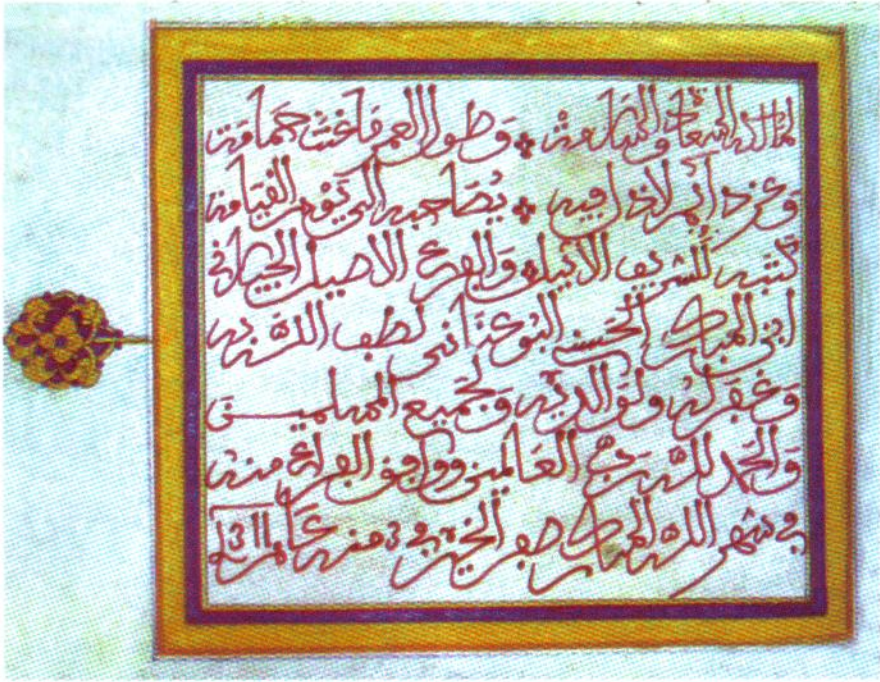 لمالكه السعادة والسلامة * وَطول العمر مَا غنت حمَامة
وَعز دَائم لا ذل فيه * يُصَاحبه الى يَوْم القيَامة
كتبه الشريف الاثيل وَالفرع الاصيل الجيلاني
ابن المبارك الحسن البوعنَاني لطف الله به
وَغفر له ولوالديه وَلجميع المسلمين
وَالحمد لله ربّ العَالمين ووافق الفراغ منه
في شهر الله المبارك صفر الخير في 3 منه عَام 1311